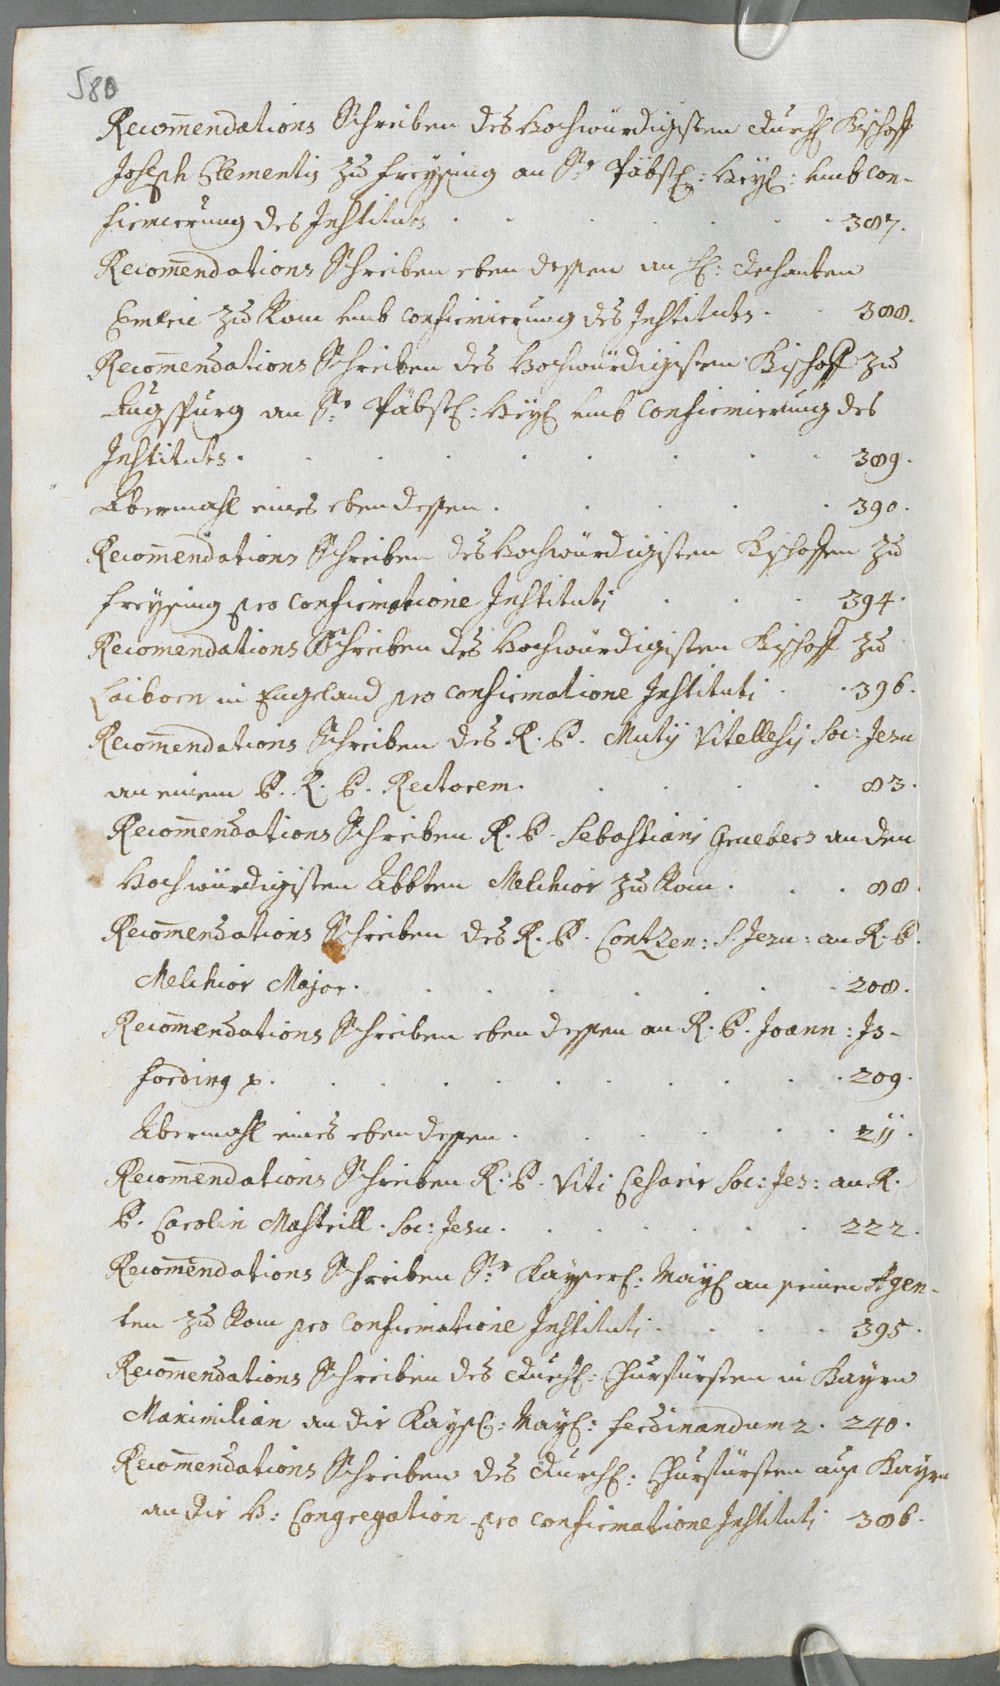 580
Recom̄endations Schreiben des Hochwürdigisten durchl Bischoff
Joseph Clementis zu Freysing an Sr Päbstl: Heyl: umb con-
firmierung des Instituts . . . . . . 387.
Recom̄endations Schreiben eben dessen an H: dechanten
zu Rom umb confirmierung des Instituts . . 388.
Recom̄endations Schreiben des Hochwürdigisten Bischoff zu
Augspurg an Sr Päbstl: Heyl umb confirmierung des
Instituts . . . . . . . . . 389.
Abermahl eines eben dessen . . . . . 390.
Recom̄endations Schreiben des Hochwürdigisten Bischoffen zu
Freysing pro confirmatione Instituti . . . 394.
Recomendations Schreiben des Hochwürdigisten Bischoff zu
in Engeland pro confirmatione Instituti . . 396.
Recom̄endations Schreiben des R. P. Mutij Vitellesij Soc: Jesu
an einem P. R. P. Rectorem . . . . . 83.
Recom̄endations Schreiben R. P. Sebastiani Gruebers an den
Hochwürdigisten Abbten Melchior zu Rom . . . 88.
Recom̄endations Schreiben des R. P. Contzen: S. Jesu: an R. P.
Melchior Major . . . . . . . . 208.
Recom̄endations Schreiben eben dessen an R. P. Joann: Js-
fording p. . . . . . . . . . 209.
Abermahl eines eben dessen . . . . . . 211.
Recom̄endations Schreiben R. P. Viti Cesarie Soc: Jes: an R.
P. Carolin Mastrill. Soc: Jesu . . . . . . 222.
Recom̄endations Schreiben Sr Kayserl: Mayl an seinen Agen-
ten zu Rom pro confirmatione Instituti . . . . 395.
Recom̄endations Schreiben des durchl: Churfürsten in Bayrn
Maximilian an die Kaysl: Mayl: Ferdinandum 2. 240.
Recom̄endations Schreiben des durchl: Churfürsten auß Bayrn
an die H: Congregation pro confirmatione Instituti 386.